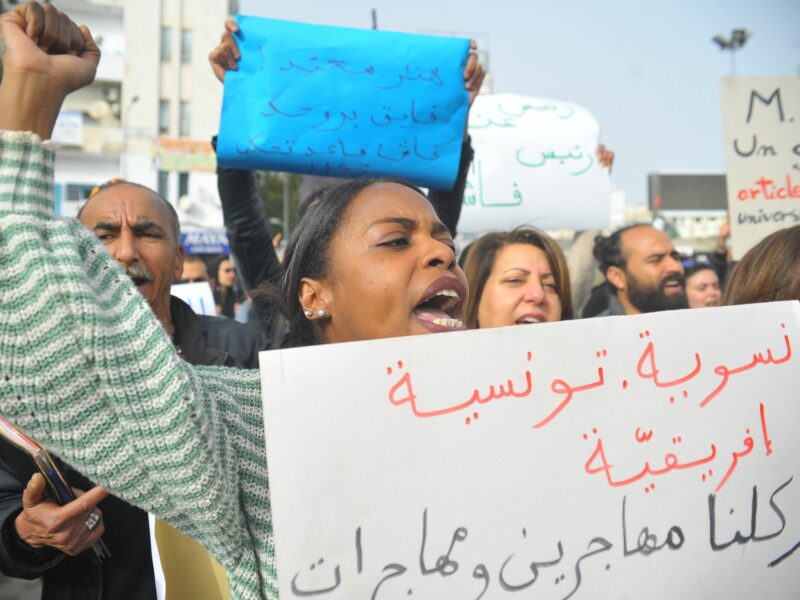 هتلر معتد !
فايق بروحك
فاش قاعد تحكي
رئيس
رئيس
M.
Un
article
univers
نسوية. تونسية
إفريقيّة
كلنا مهاجرين ومهاجرات